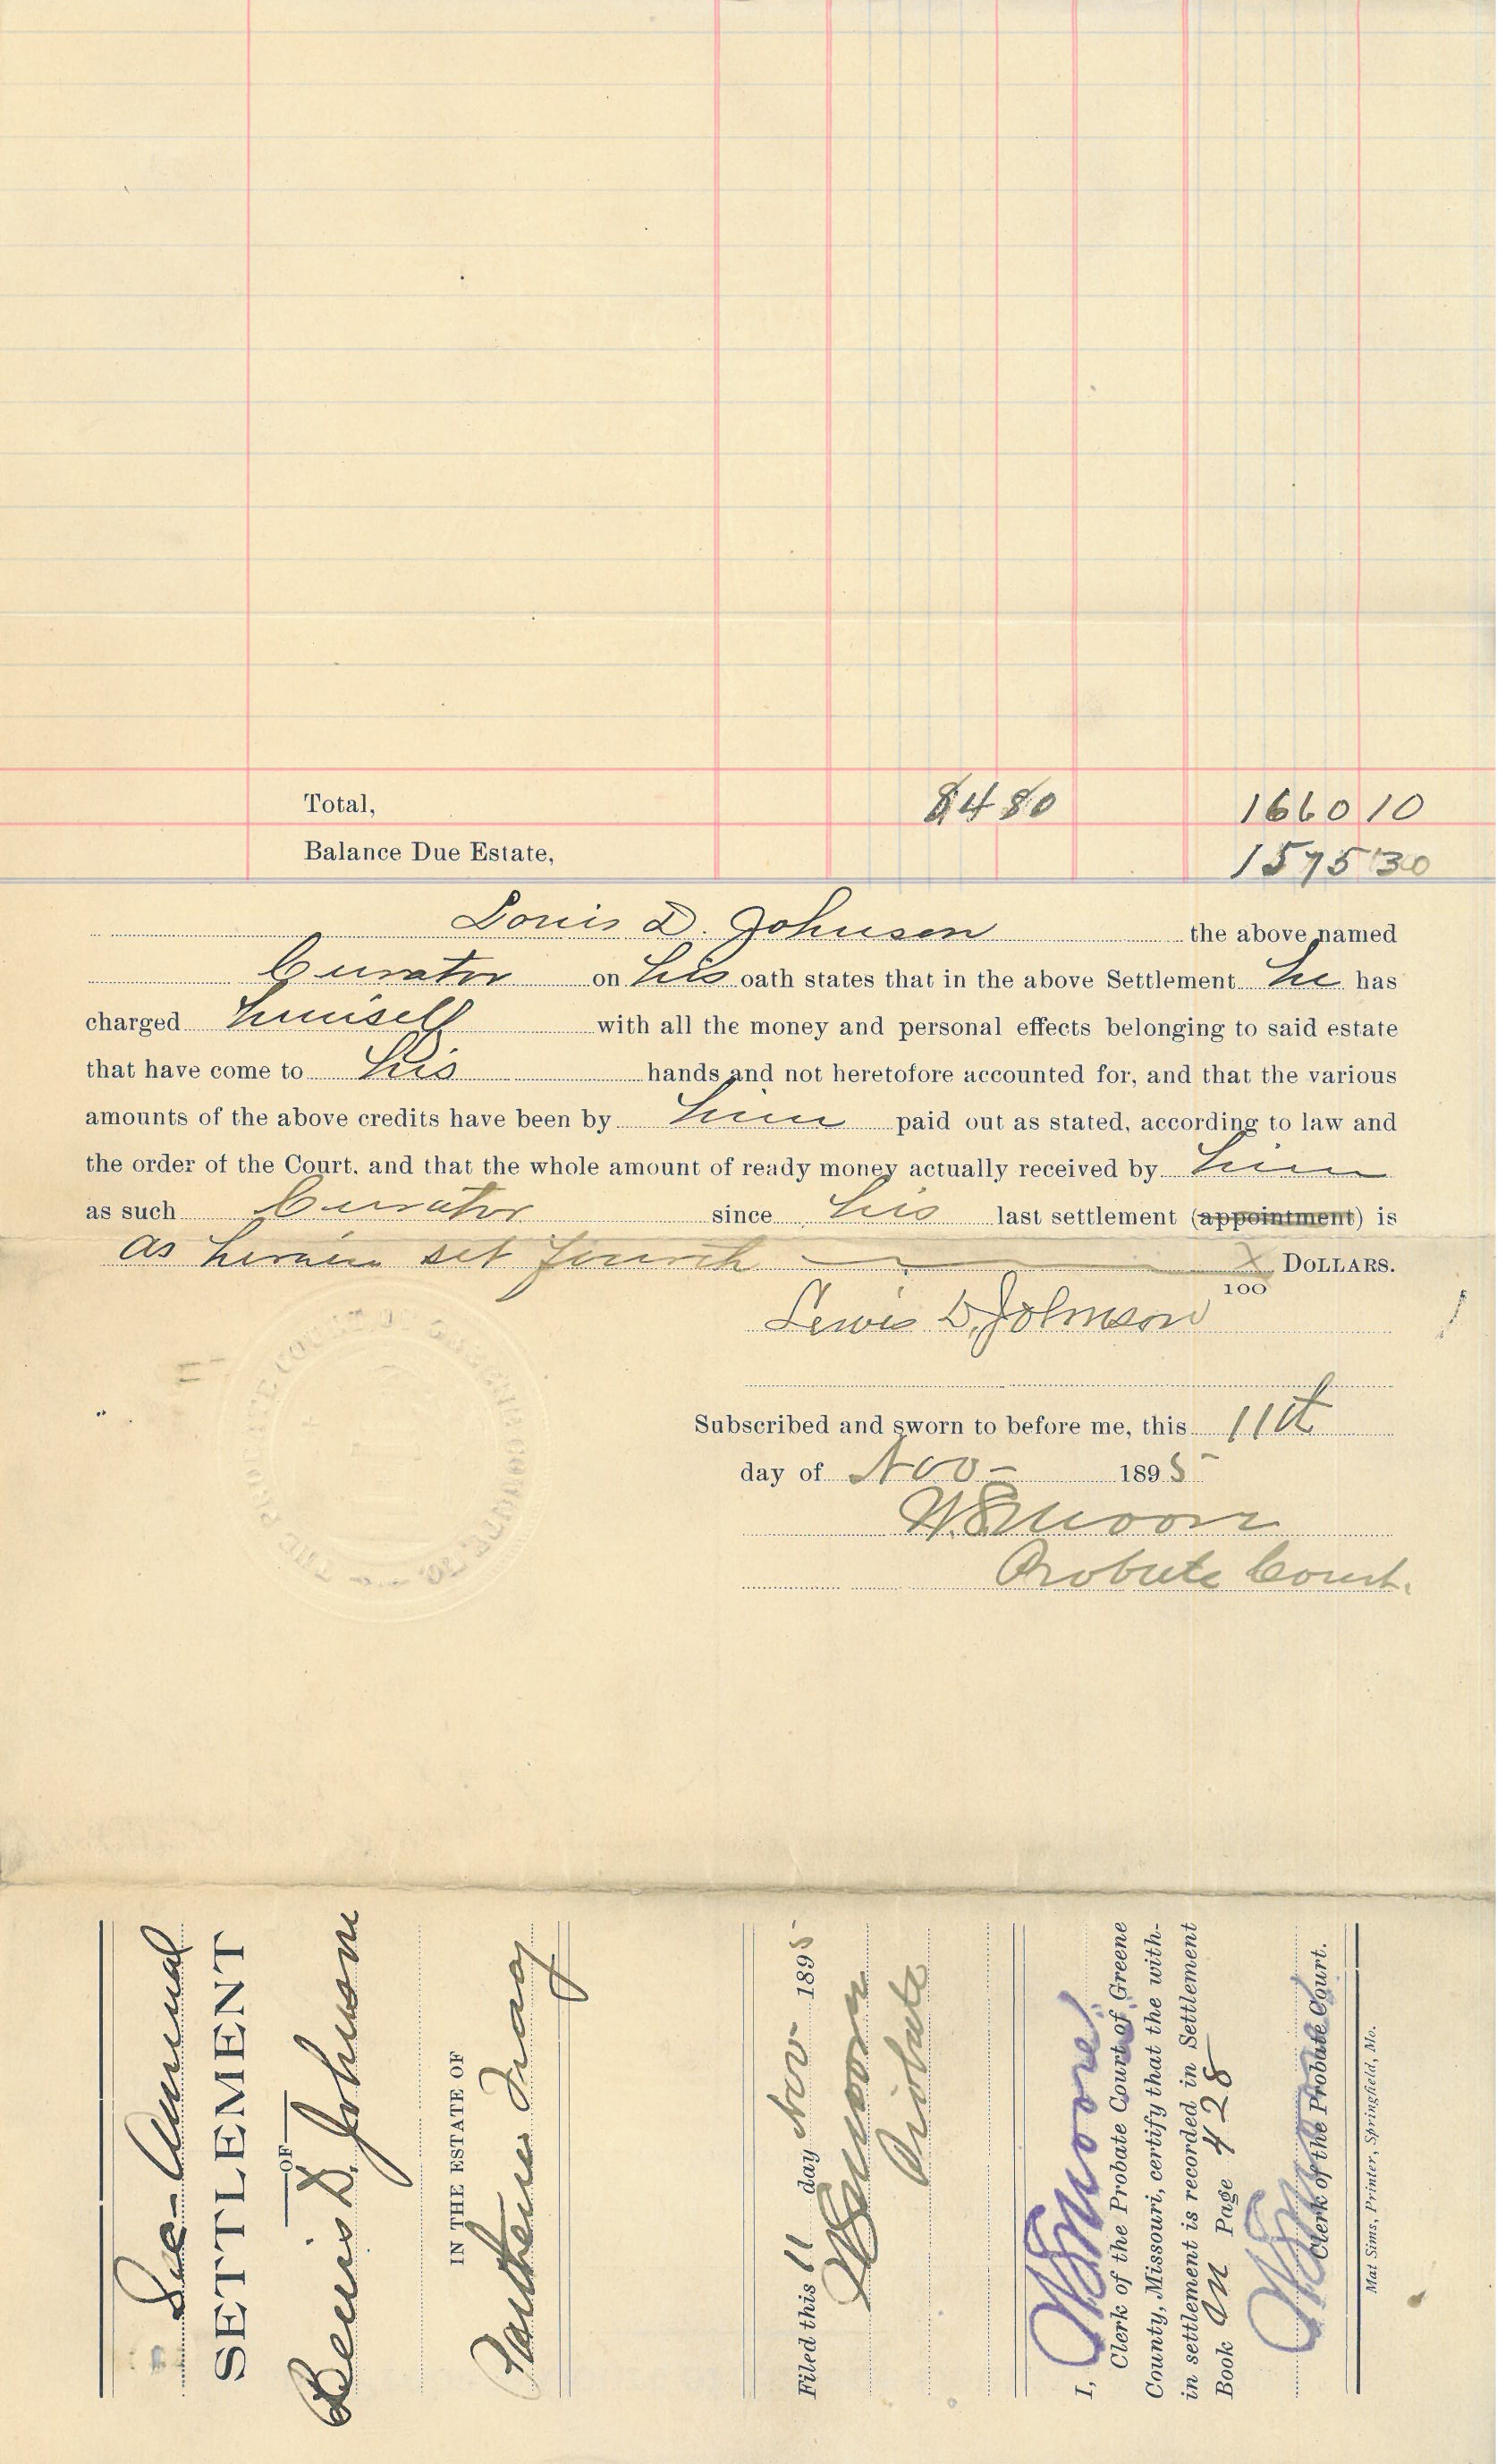 Total, $4 80 1660 10
Balance Due Estate, 1575 30
Louis D. Johnson the above named
Curator on his oath states that in the above Settlement he has
charged himself with all the money and personal effects belonging to said estate
that have come to his hands and not heretofore accounted for, and that the various
amounts of the above credits have been by him paid out as stated, according to law and
the order of the Court, and that the whole amount of ready money actually received by him
as such Curator since his last settlement (appointment) is
as herein set fourth X DOLLARS.
100
Lewis D. Johnson
Subscribed and sworn to before me, this 11th
day of Nov - 1895
W.E. Moore
Probate Court.
THE PROBATE COURT OF GREENE COUNTY MO.
Annual
SETTLEMENT
OF
D. Johnson
IN THE ESTATE OF
Filed this 11 day Nov 1895
Probate
I,
Clerk of the Probate Court of Greene
County, Missouri, certify that the with-
in settlement is recorded in Settlement
Book M Page 428
Clerk of the Probate Court.
Mat Sims, Printer, Springfield, Mo.